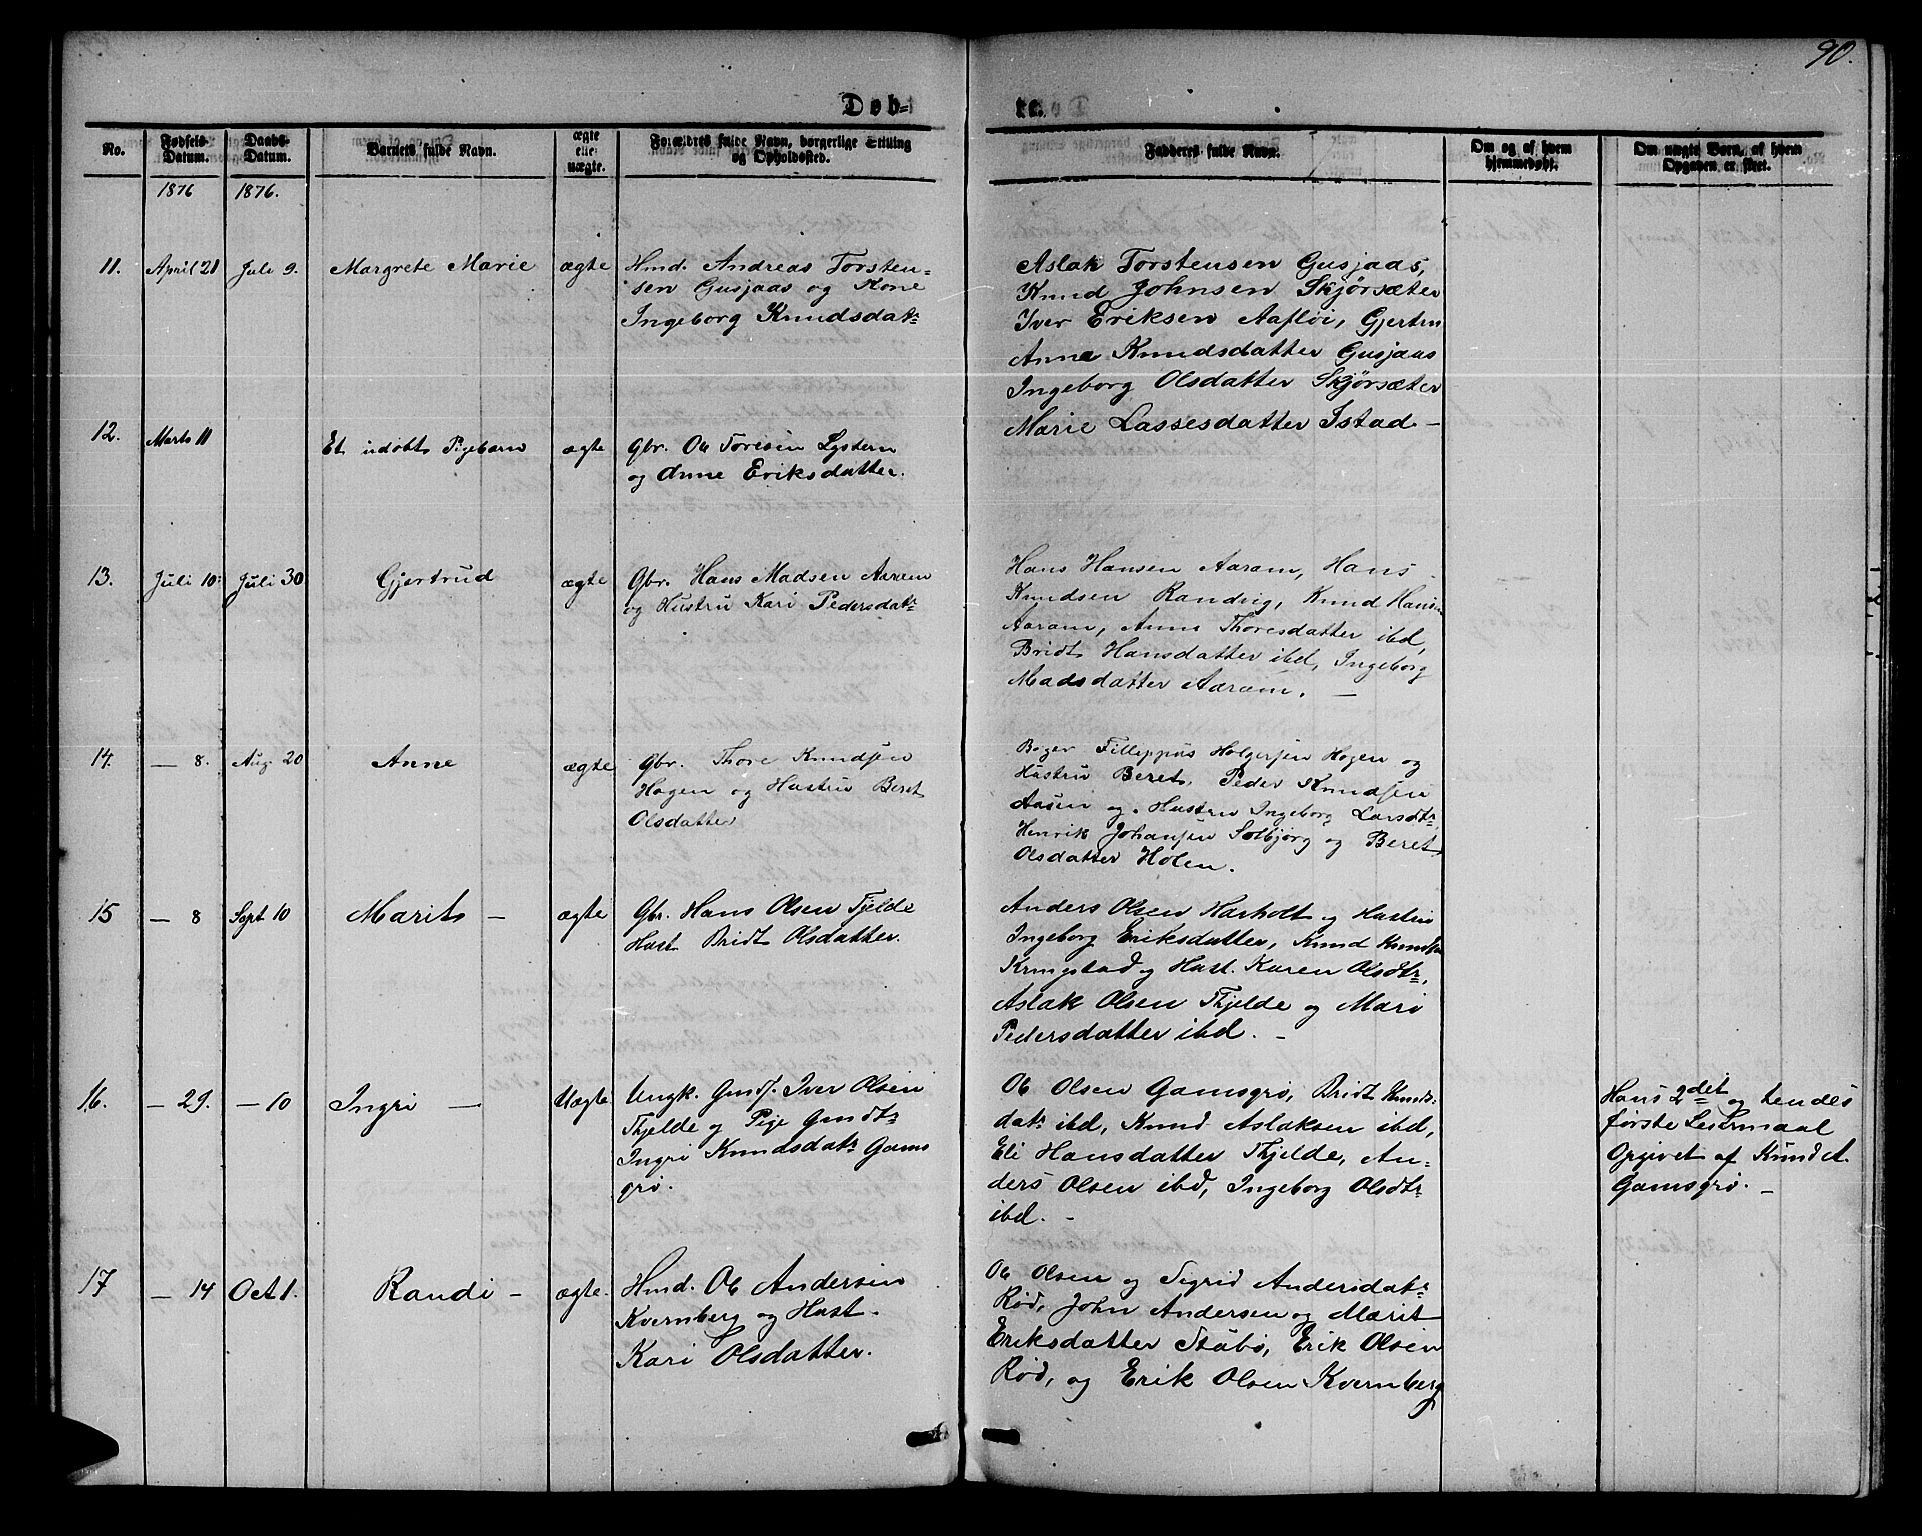 90.
Døb-
te.
No.
Fødsels-
Datum.
Daabs-
Datum.
Barnets fulde Navn.
ægte
eller
uægte.
Forældres fulde Navn, borgerlige Stilling
og Opholdssted.
Fadderes fulde Navn.
Om og af hvem
hjemmedøbt.
Om uægte Børn, af hvem
Opgaven er skeet.
1876 1876.
11. April 21 Juli 9. Margrete Marie ægte
Hmd. Andreas Torsten-
sen Gusjaas og Kone
Ingeborg Knudsdatr
Aslak Torstensen Gusjaas,
Knud Johnsen Skjørsæter
Iver Eriksen Aafløi, Gjertru
Anne Knudsdatter Gusjaas
Ingeborg Olsdatter Skjørsæter
Marie Lassesdatter Istad -
12. Marts 11 Et udøbt Pigebarn ægte
Gbr. Ole Toresen Lystern
og Anne Eriksdatter.
13. Juli 10 Juli 30 Gjertrud ægte
Gbr. Hans Madsen Aaram
og Hustru Kari Pedersdatr
Hans Hansen Aaram, Hans
Knudsen Randvig, Knud Hans
Aaram, Anne Thoresdatter ibd,
Bridt Hansdatter ibd, Ingeborg
Madsdatter Aaram. -
14. - 8. Aug. 20 Anne ægte
Gbr. Thore Knudsen
Hagen og Hustru Beret
Olsdatter
Fillippus Holgersen Hagen og
Hustru Beret. Peder Knudsen
Aasen og Hustru Ingeborg Larsdtr
Henrik Johansen Solbjørg og Beret
Olsdatter Holen.
15 - 8 Sept 10 Marit - ægte
Gbr. Hans Olsen Fjelde
Hust Bridt Olsdatter.
Anders Olsen Harholt og Hustru
Ingeborg Eriksdatter, Knud Knuds
Kringstad og Hust. Karen Olsdtr,
Aslak Olsen Thjelde og Mari
Pedersdatter ibd. -
16. - 29. - 10 Ingri - Uægte
Ungk. Gmdf. Iver Olsen
Thjelde og Pige Gmdtr
Ingri Knudsdatr Gams
grø.
Ole Olsen Gamsgrø, Bridt Knuds
datr ibd, Knud Aslaksen ibd,
Eli Hansdatter Thjelde, An-
ders Olsen ibd, Ingeborg Olsdtr
ibd. -
Hans 2det og hendes
første Leiermaal
Opgivet af Knud A.
Gamsgrø. -
17 - 14 Oct 1. Randi - ægte.
Hmd. Ole Andersen
Kvernberg og Hust.
Kari Olsdatter.
Ole Olsen og Sigrid Andersdatr
Rød, John Andersen og Marit
Eriksdatter Stubø, Erik Olsen
Rød, og Erik Olsen Kvernberg